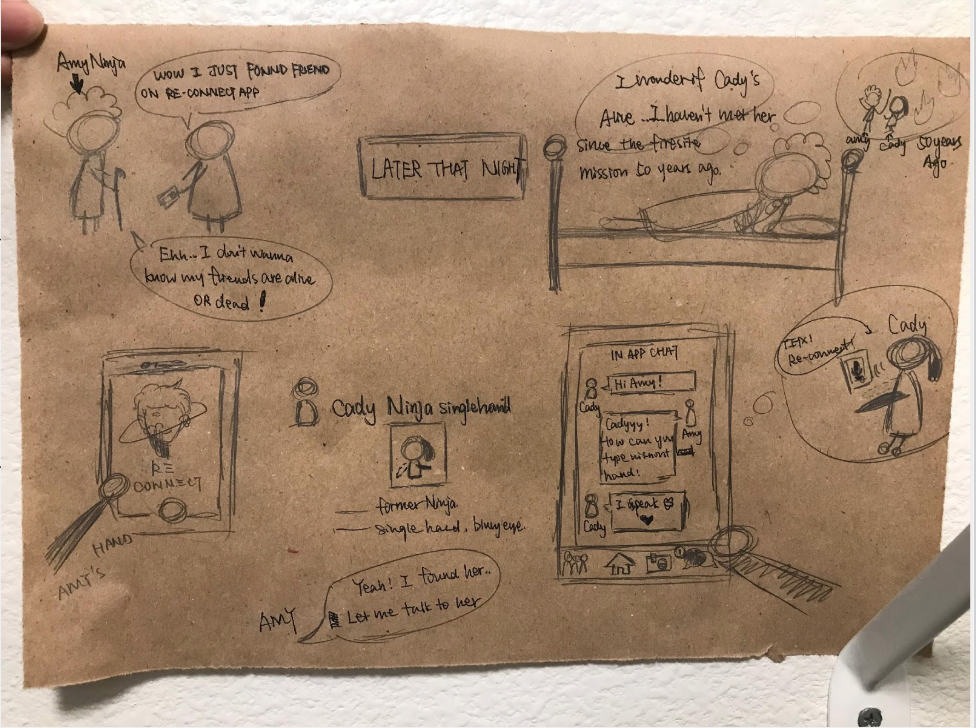 Amy Ninja
WOW I JUST FOUND FRIEND
ON RE-CONNECT APP
Ehh... I don't wanna
know my friends are alive
OR dead!
LATER THAT NIGHT
I wonder if Cady's
Alive ... I haven't met her
since the firesite
mission 50 years ago.
amy Cady 50 years
Ago.
RE
CONNECT
HAND
AMY'S
Cady Ninja singlehand
former Ninja
single hand, blurry eye.
AMY
Yeah! I found her..
Let me talk to her
IN APP CHAT
Hi Amy!
Cady
Cadyyy!
How can you
type without
hand!
Amy
I speak
Cady
Re-connect!
Cady